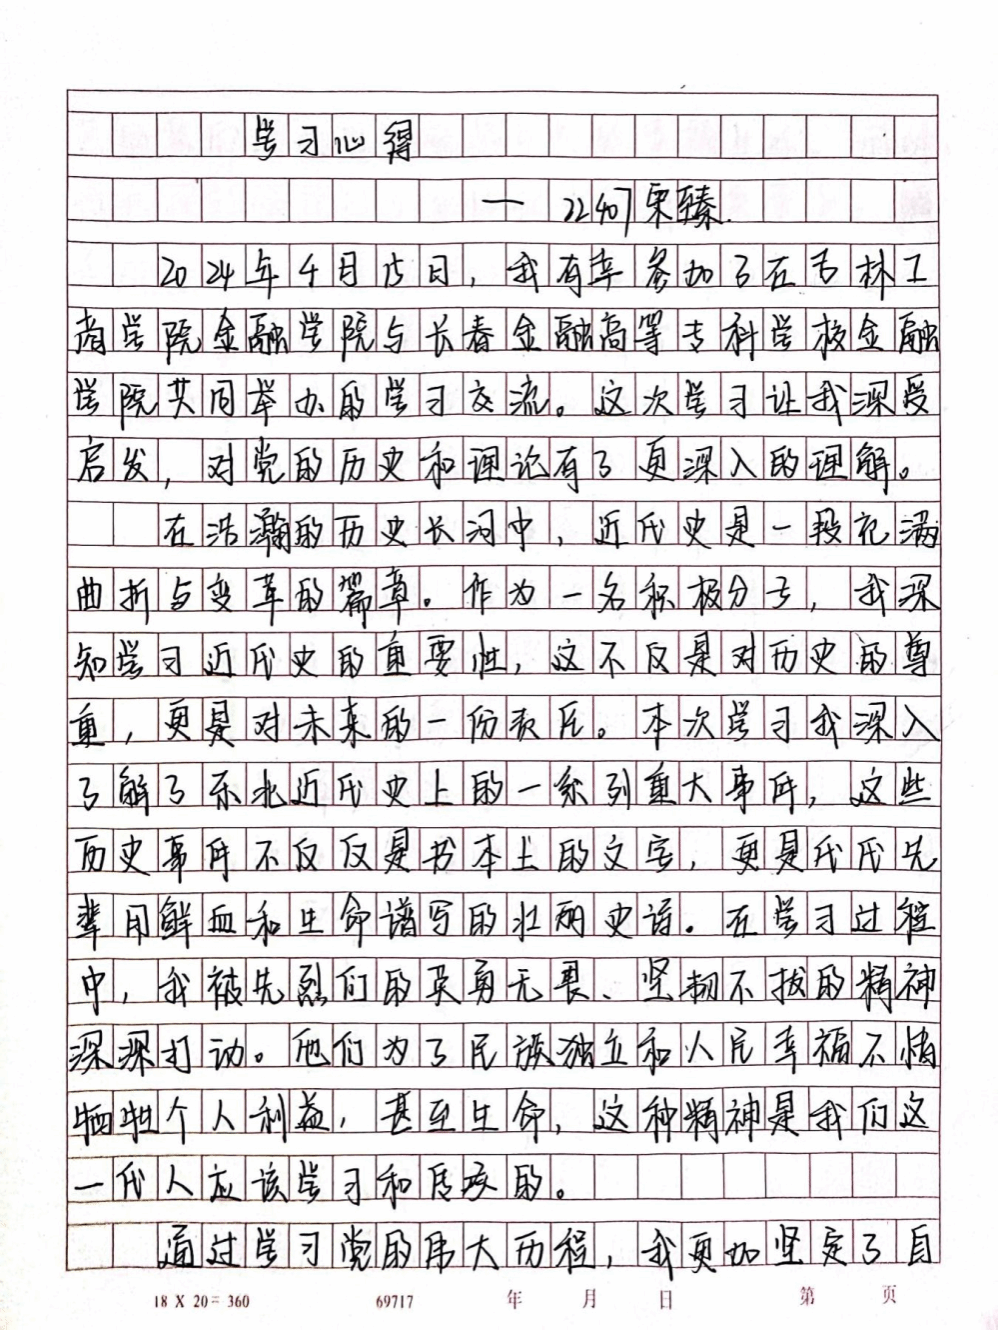 学习心得
— 22407栗臻.
2024年4月15日，我有幸参加了在吉林工
商学院金融学院与长春金融高等专科学校金融
学院共同举办的学习交流。这次学习让我深受
启发，对党的历史和理论有了更深入的理解。
在浩瀚的历史长河中，近代史是一段充满
曲折与变革的篇章。作为一名积极分子，我深
知学习近代史的重要性，这不仅是对历史的尊
重，更是对未来的一份责任。本次学习我深入
了解了东北近代史上的一系列重大事件，这些
历史事件不仅仅是书本上的文字，更是代代先
辈用鲜血和生命谱写的壮丽史诗。在学习过程
中，我被先烈们的英勇无畏、坚韧不拔的精神
深深打动。他们为了民族独立和人民幸福不惜
牺牲个人利益，甚至生命，这种精神是我们这
一代人应该学习和传承的。
通过学习党的伟大历程，我更加坚定了自
18 X 20 = 360 69717 年 月 日 第 页